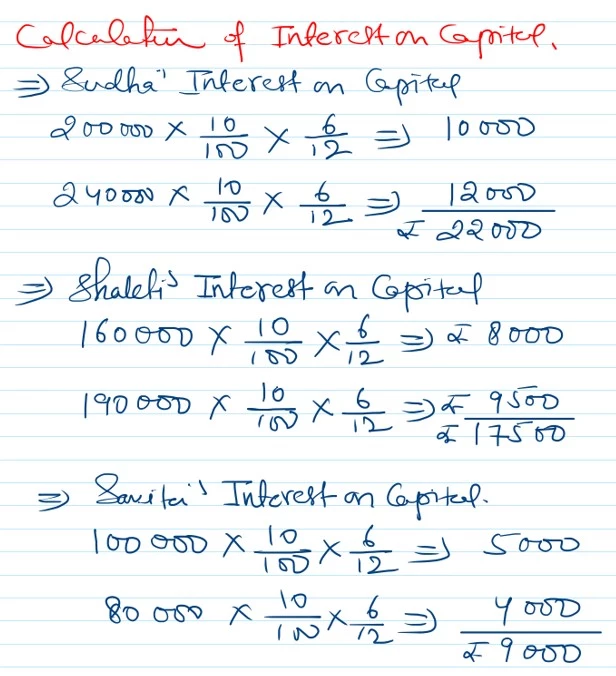 Calculation of Interest on Capital.
⇒ Sudha's Interest on Capital
200000 × 10/100 × 6/12 ⇒ 10000
240000 × 10/100 × 6/12 ⇒ 12000
₹ 22000
⇒ Shakti's Interest on Capital
160000 × 10/100 × 6/12 ⇒ ₹ 8000
190000 × 10/100 × 6/12 ⇒ ₹ 9500
₹ 17500
⇒ Savita's Interest on Capital.
100000 × 10/100 × 6/12 ⇒ 5000
80000 × 10/100 × 6/12 ⇒ 4000
₹ 9000